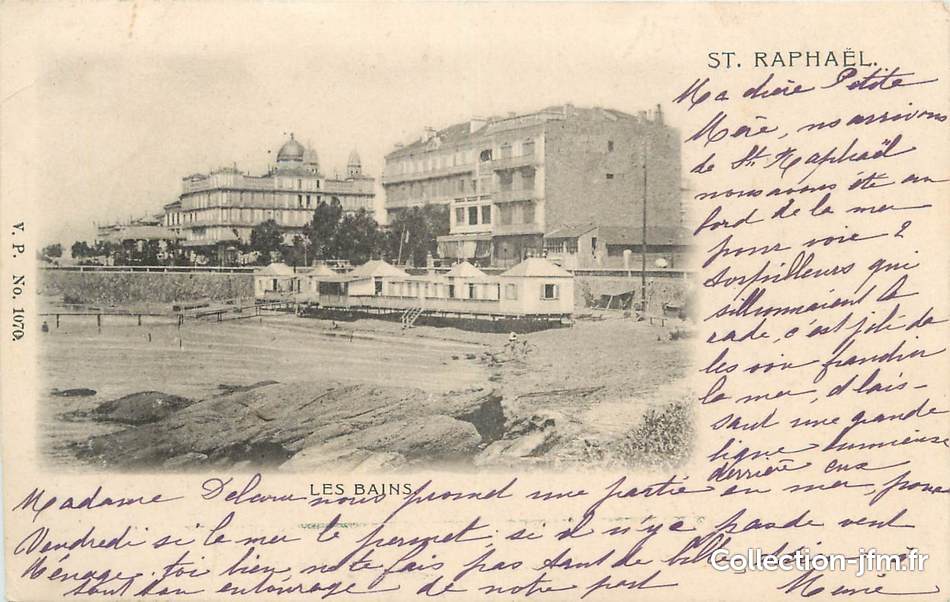 ST. RAPHAËL.
Ma chère Petite
Mère, ns arrivons
de St. Raphaël
nous avons été au
bord de la mer
pour voir 2
torpilleurs qui
sillonnaient la
rade, c'est joli de
les voir fendre
la mer, laissant
une grande
ligne lumineuse
derrière eux
V. P. No. 1070.
LES BAINS
Madame nous promet une partie en mer, pour
Vendredi si la mer le permet si il n'y a pas de vent
Ménage toi bien ne te fais pas tant de bile
tout ton entourage de notre part
Collection-jfm.fr